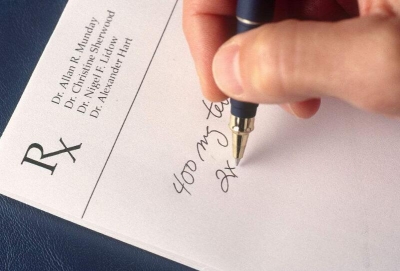 Dr. Allan R. Munday
Dr. Christine Sherwood
Dr. Nigel F. Lidow
Dr. Alexander Hart
Rx
400 mg
2x